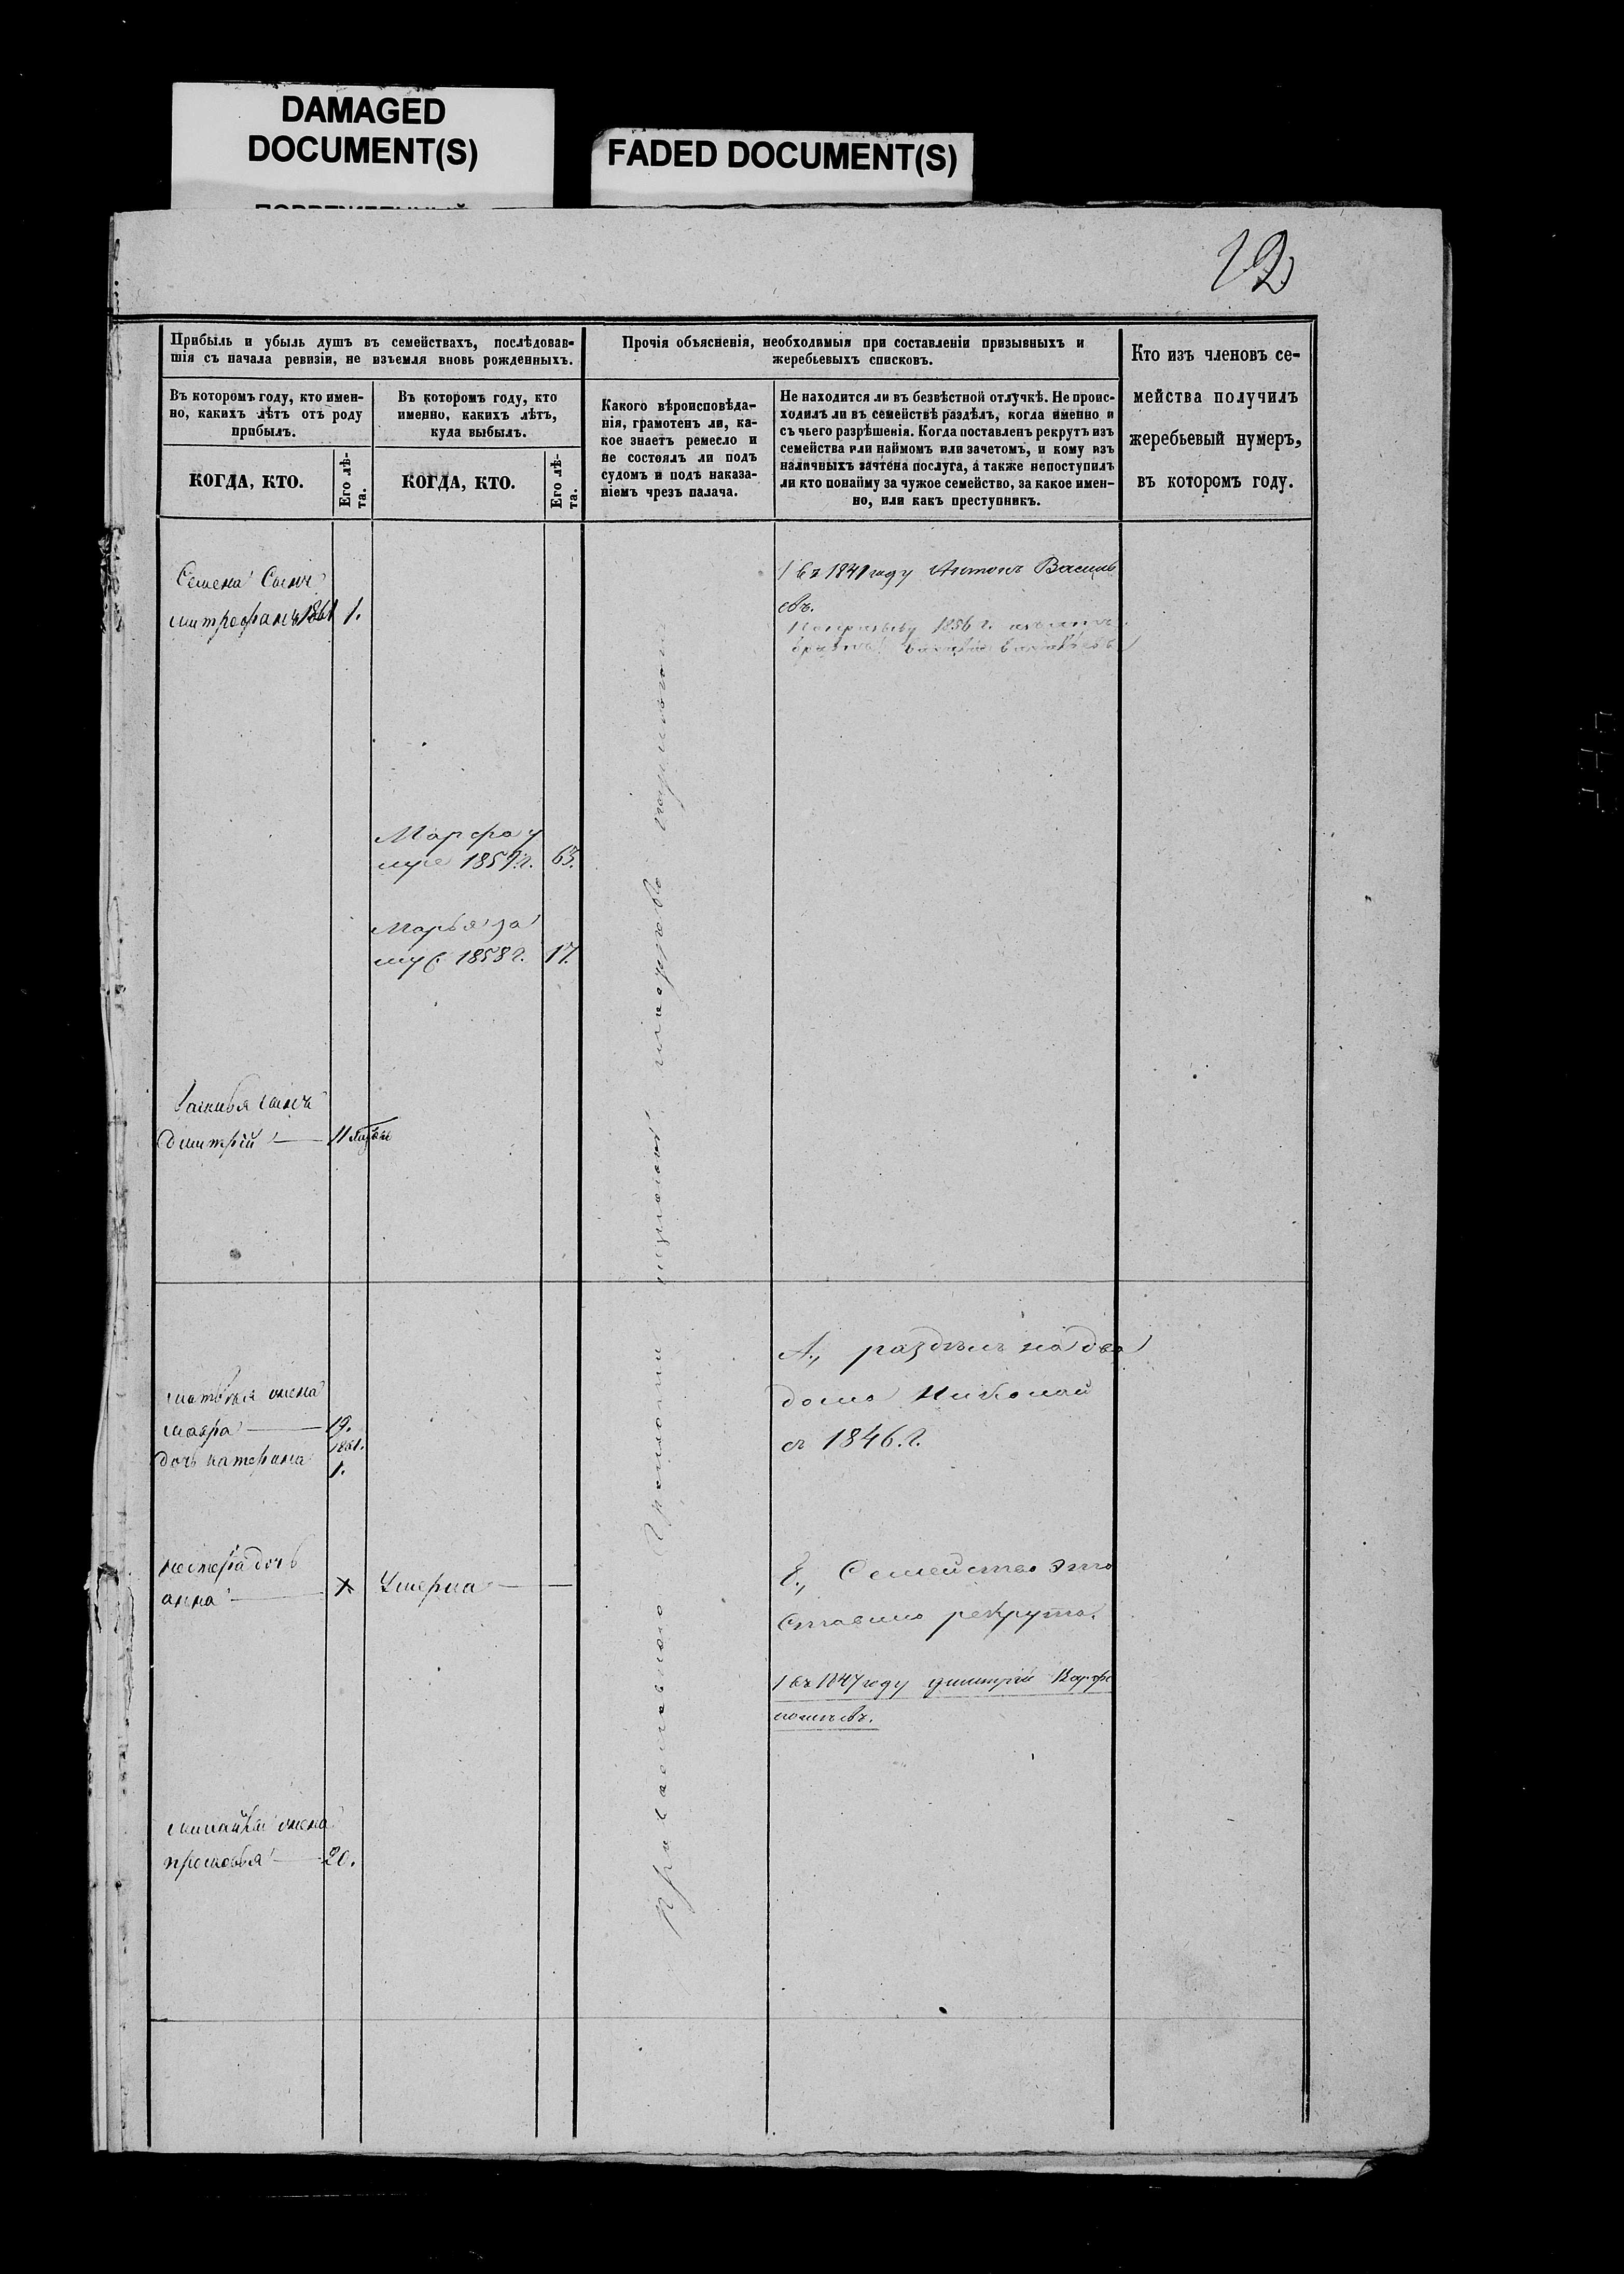 DAMAGED
DOCUMENT(S)
FADED DOCUMENT(S)
12
Прибыль и убыль душъ въ семействахъ, послѣдовав-
шія съ начала ревизіи, не взъемля вновь рожденныхъ.
Прочія объясненія, необходимыя при составленіи призывныхъ и
жеребьевыхъ списковъ.
Кто изъ членовъ се-
мейства получилъ
жеребьевый нумеръ,
въ которомъ году.
Въ которомъ году, кто имен-
но, какихъ лѣтъ отъ роду
прибылъ.
Въ которомъ году, кто
именно, какихъ лѣтъ,
куда выбылъ.
Какого вѣроисповѣда-
нія, грамотенъ ли, ка-
кое знаетъ ремесло и
не состоялъ ли подъ
судомъ и подъ наказа-
ніемъ чрезъ палача.
Не находится ли въ безвѣстной отлучкѣ. Не проис-
ходилъ ли въ семействѣ раздѣлъ, когда именно и
съ чьего разрѣшенія. Когда поставленъ рекрутъ изъ
семейства или наймомъ или зачетомъ, и кому изъ
наличныхъ зачтена послуга, а также непоступилъ
ли кто понайму за чужое семейство, за какое имен-
но, или какъ преступникъ.
КОГДА, КТО.
Его лѣ-
та.
КОГДА, КТО.
Его лѣ-
та.
Семена Сынъ
митрофанъ 1861 1.
1 въ 1841 году Антонъ Василь
евъ.
1856 г.
Марфа у
мре 1859 г. 63.
Марья за
муж 1858 г. 17.
сынъ
Дмитрій 11
А., раздѣлъ на два
дома Николай
съ 1846. г.
матвѣя жена
мавра 19.
дочь катерина 1861.
1.
нестера дочь
анна Умерла
Е., Семейство это
Ставило рекрута.
1 въ 1847 году дмитрій Варфо
ломѣевъ.
жена
прасковья 20.
Православного